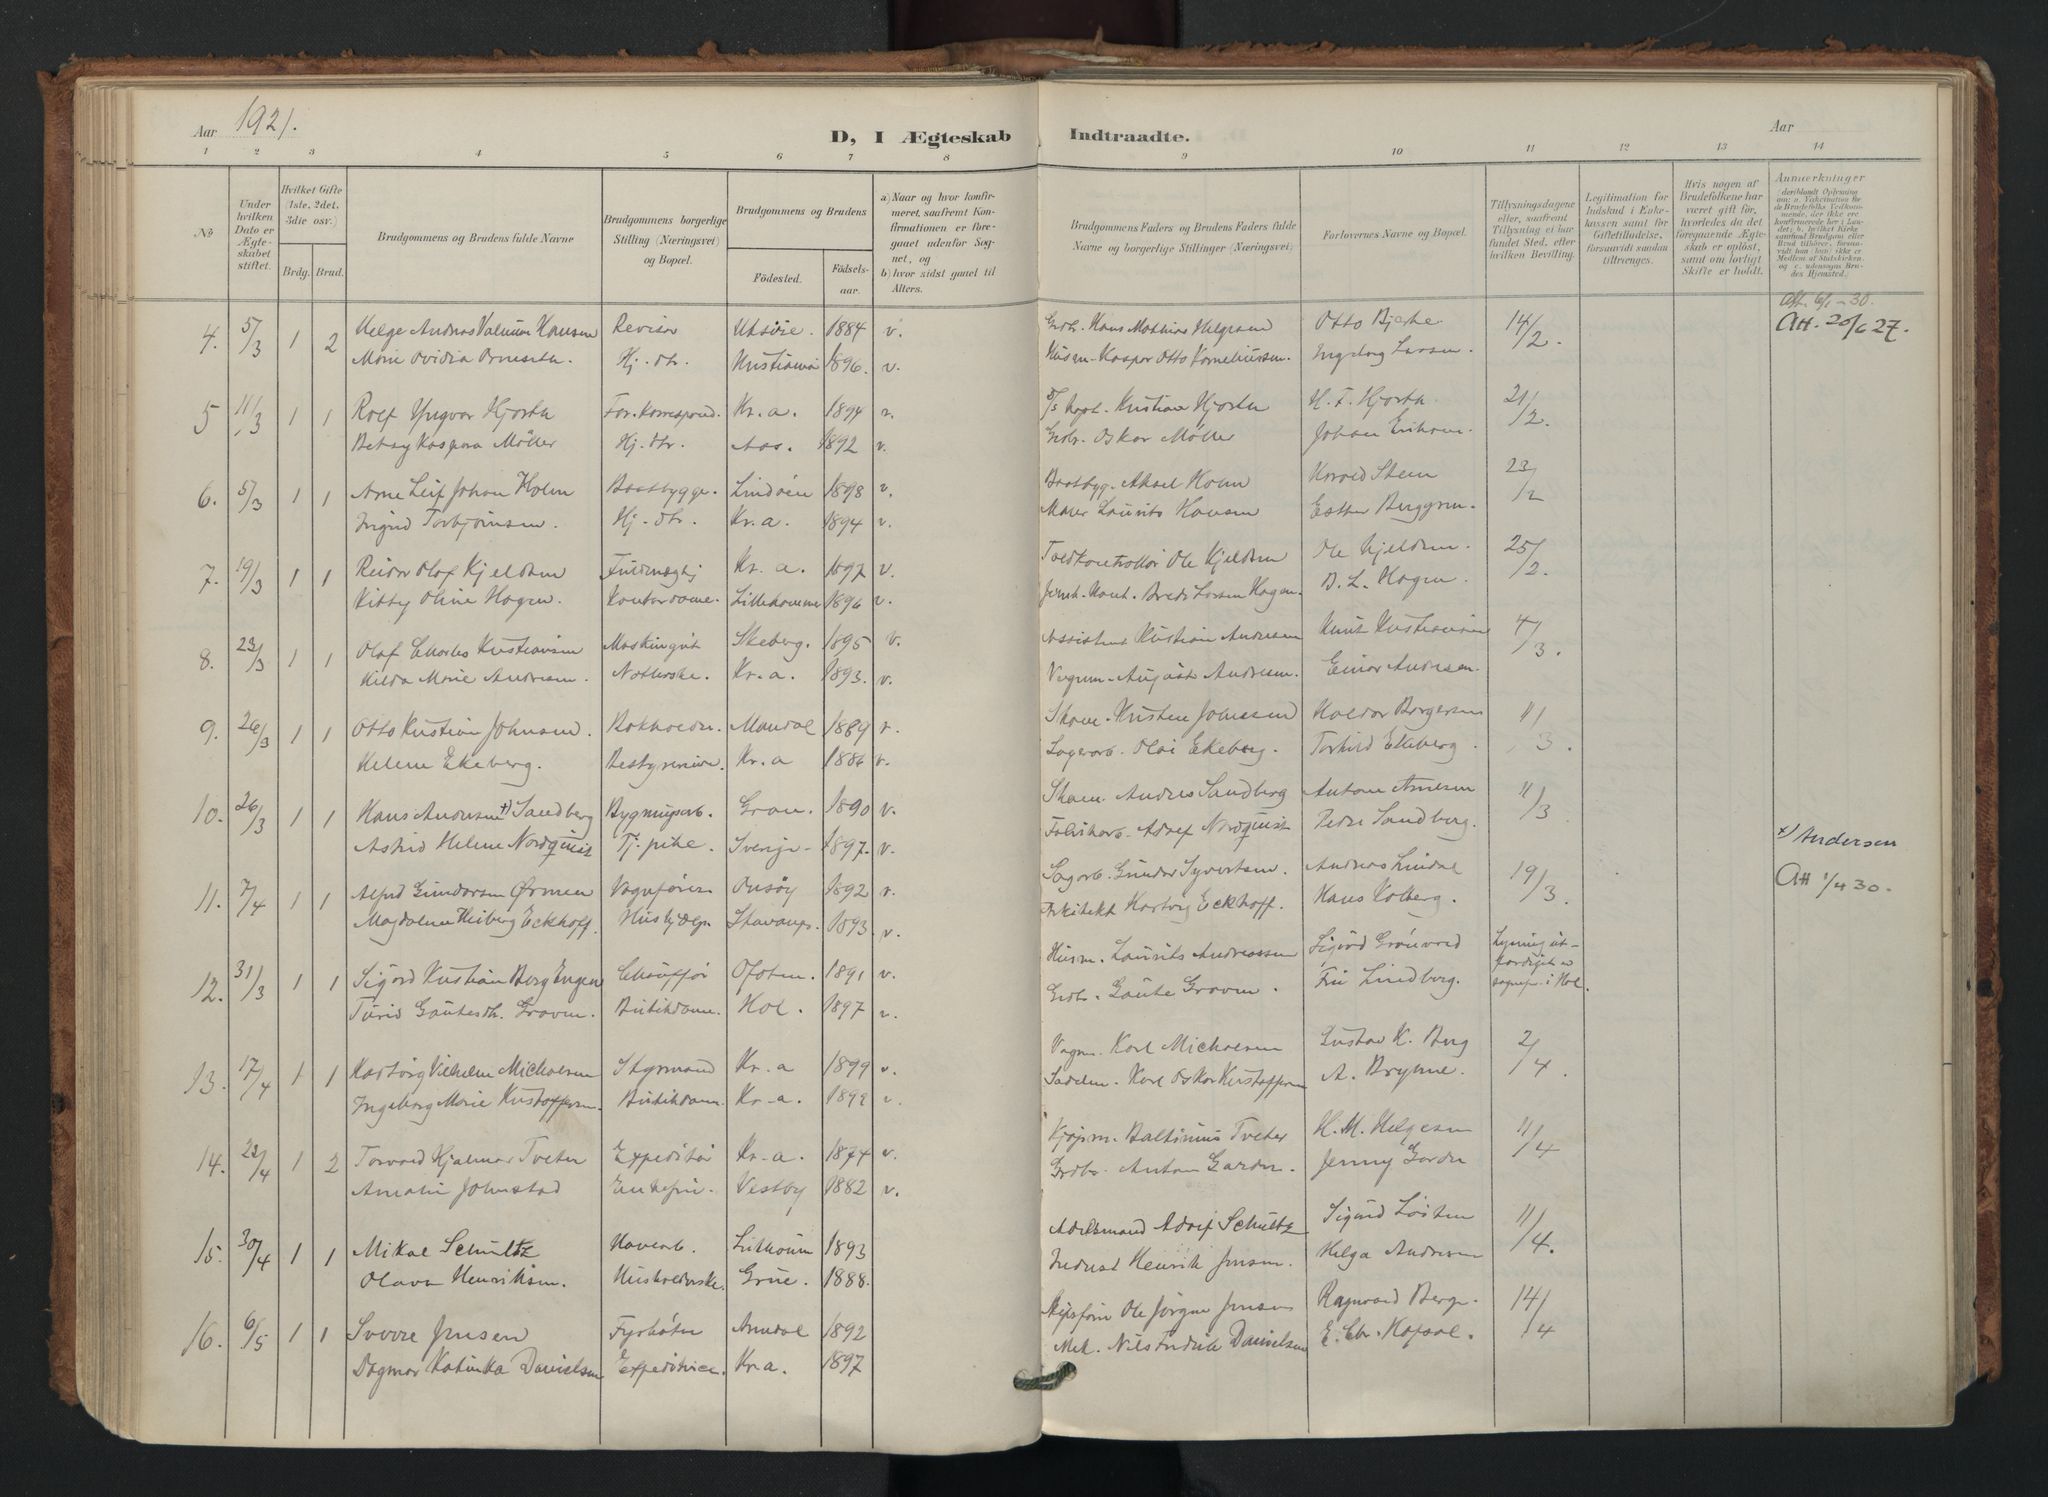 Aar 1921.
D, I Ægteskab Indtraadte.
Aar
1 2 3 4 5 6 7 8 9 10 11 12 13 14
No
Under hvilken Dato er Ægteskabet stiftet.
Hvilket Gifte (1ste, 2det, 3die osv.)
Brdg. Brud.
Brudgommens og Brudens fulde Navne
Brudgommens borgerlige Stilling (Næringsvei) og Bopæl.
Brudgommens og Brudens
Födested.
Födselsaar.
a) Naar og hvor konfirmeret, saafremt Konfirmationen er foregaaet udenfor Sognet, og
b) hvor sidst gaaet til Alters.
Brudgommens Faders og Brudens Faders fulde Navne og borgerlige Stillinger (Næringsvei)
Forlovernes Navne og Bopæl.
Tillysningsdagene eller, saafremt Tillysning ei har fundet Sted, efter hvilken Bevilling.
Legitimation for Indskud i Enkekassen samt for Giftetilladelse, forsaavidt saadan tiltrænges.
Hvis nogen af Brudefolkene har været gift før, hvorledes da det foregaaende Ægteskab er oplöst, samt om lovligt Skifte er holdt.
Anmærkninger
4. 5/3 1 2 Helge Andreas Hansen Revisor Utsire. 1884 v. Hans Mathias Helgesen Otto Bjerke 14/2. Att. 6/1-30. Att. 20/6 27.
Marie Ovidia Hj. dtr. Kristiania 1896. v. Husm. Kaspar Otto Korneliussen. Ingeborg Larsen.
5 11/3 1 1 Rolf Yngvar Hjorth For. Korrespond. Kr. a. 1894 v. Kristian Hjorth H. F. Hjorth 21/2.
Betsy Kaspara Möller Hj. dtr. Aas. 1892 v. Oskar Møller Johan Eriksen.
6. 5/3 1 1 Arne Leif Johan Holm Baatbygge. Lindöen 1898 v. Baatbyg. Aksel Holm Harald Steen 23/2
Ingrid Torbjörnsen. Hj. dtr. Kr. a. 1894 v. Maler Laurits Hansen Esther Berggren.
7. 19/3 1 1 Reidar Olaf Kjeldsen Fuldmægtig Kr. a. 1897 v. Toldkontrollör Ole Kjeldsen Ole Kjeldsen. 25/2.
Kitty Oline Hagen. Kontordame. Lillehammer 1896 v. Larsen Hagen. B. L. Hagen.
8. 23/3 1 1 Olaf Charles Kristiansen Maskinist Skeberg. 1895 v. Assistent Kristian Andersen Knut Kristiansen 4/3.
Hilda Marie Andresen. Kr. a. 1893. v. August Andresen. Einar Andresen.
9. 26/3 1 1 Otto Kristian Johnsen. Bokholder. Mandal 1889 v. Kristen Johnsen Haldor Borgersen 11/3.
Helene Ekeberg. Bestyrerinne. Kr. a 1886 v. Lagerarb. Olai Ekeberg. Torhild Ekeberg.
10. 26/3 1 1 Hans Andersen +) Sandberg Bygningsarb. Gran. 1890 v. Andres Sandberg Anton Arnesen 11/3
Astrid Helene Nordquist Tj. pike. Sverige 1897. v. Fabrikarb. Adolf Nordquist Peder Sandberg. x) Andersen
11. 7/4 1 1 Alfred Gundersen Ørmen Vognfører Onsöy 1892 v. Sagarb. Gunder Syvertsen. Andreas Lindal 19/3. Att 1/4 30.
Magdalene Heiberg Eckhoff. Stavanger. 1893. v. Arkitekt Hartvig Eckhoff. Hans Kolberg.
12. 31/3 1 1 Sigurd Kristian Berg Engen Chauffør Ofoten. 1891 v. Husm. Laurits Andreassen Sigurd Grönvold Lysning utfærdiget av sognepr. i Hol.
Turid Gautesdtr. Graven. Butikdame. Hol. 1897 v. Grdbr. Gaute Graven. Fru Lindberg.
13. 17/4 1 1 Hartvig Vilhelm Michaelsen Styrmand Kr. a 1899 v. Vogm. Karl Michaelsen Gustav K. Berg 2/4.
Ingeborg Marie Kristoffersen. Butikdame. Kr. a. 1899 v. Sadelm. Karl Oskar Kristoffersen A. Brynne.
14. 23/4 1 2 Torvald Hjalmar Tveter Expeditör Kr. a. 1874 v. Kjöpm. Baltinius Tveter H. M. Helgesen 11/4
Amalie Johnstad Enkefru. Vestby 1882 v. Grdbr. Anton Garder. Jenny Garder
15. 30/4 1 1 Mikal Schultz Havearb. 1893 Arbeidsmand Adolf Schultz Sigurd Løiten 11/4.
Olava Henriksen. Husholderske. Grue. 1888. Inderst Henrik Jensen. Helga Andresen
16. 6/5 1 1 Sverre Jensen Fyrbøter Arendal 1892 Skipsfører Ole Jörgen Jensen Ragnvald Berge. 14/4
Dagmar Katinka Danielsen Expeditrice. Kr. a. 1897 Mek. Nils Fredrik Danielsen E. Chr. Hofsal.